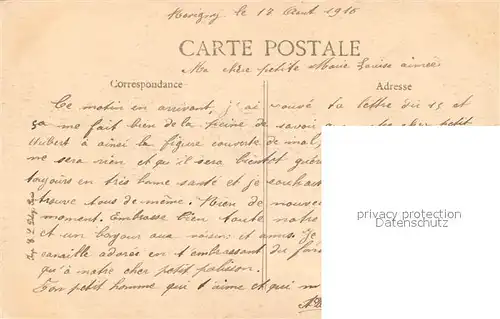 Marigny le 17 Août 1916
CARTE POSTALE
Ma chère petite Marie Louise aimée
Correspondance
Adresse
Ce matin en arrivant, j'ai trouvé ta lettre du 15 et
ça me fait bien de la peine de savoir
Hubert a ainsi la figure couverte de mal,
me sera rien et qu'il sera bientôt
toujours en très bonne santé et je souhait
trouve tous de même. Rien de nouve
moment. Embrasse bien toute notre
et un bonjour aux voisins et amis. Je
canaille adorée en t'embrassant du fon
qu'à notre cher petit polisson.
Ton petit homme qui t'aime et qui
privacy protection
Datenschutz